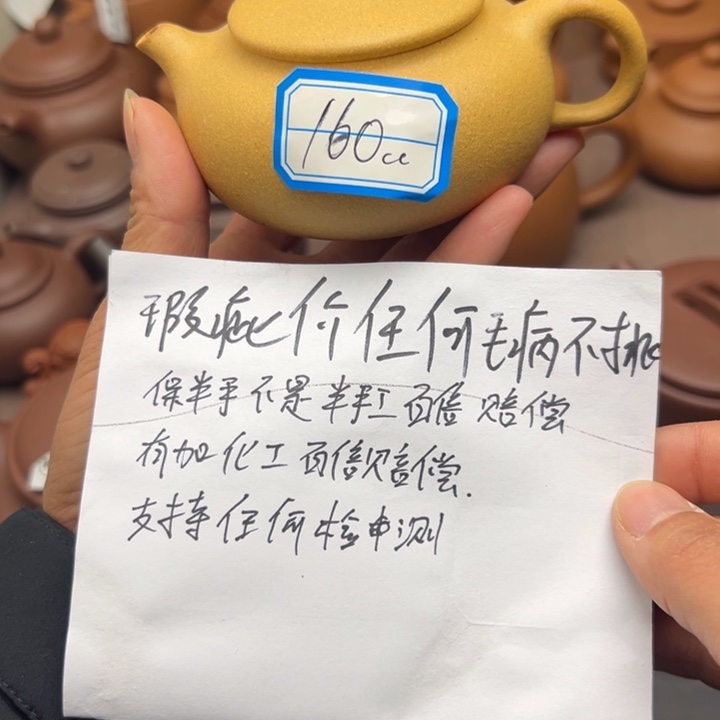 160cc
瑕疵价任何毛病不挑
保半手不是半手工百倍赔偿
有加化工百倍赔偿.
支持任何检申测